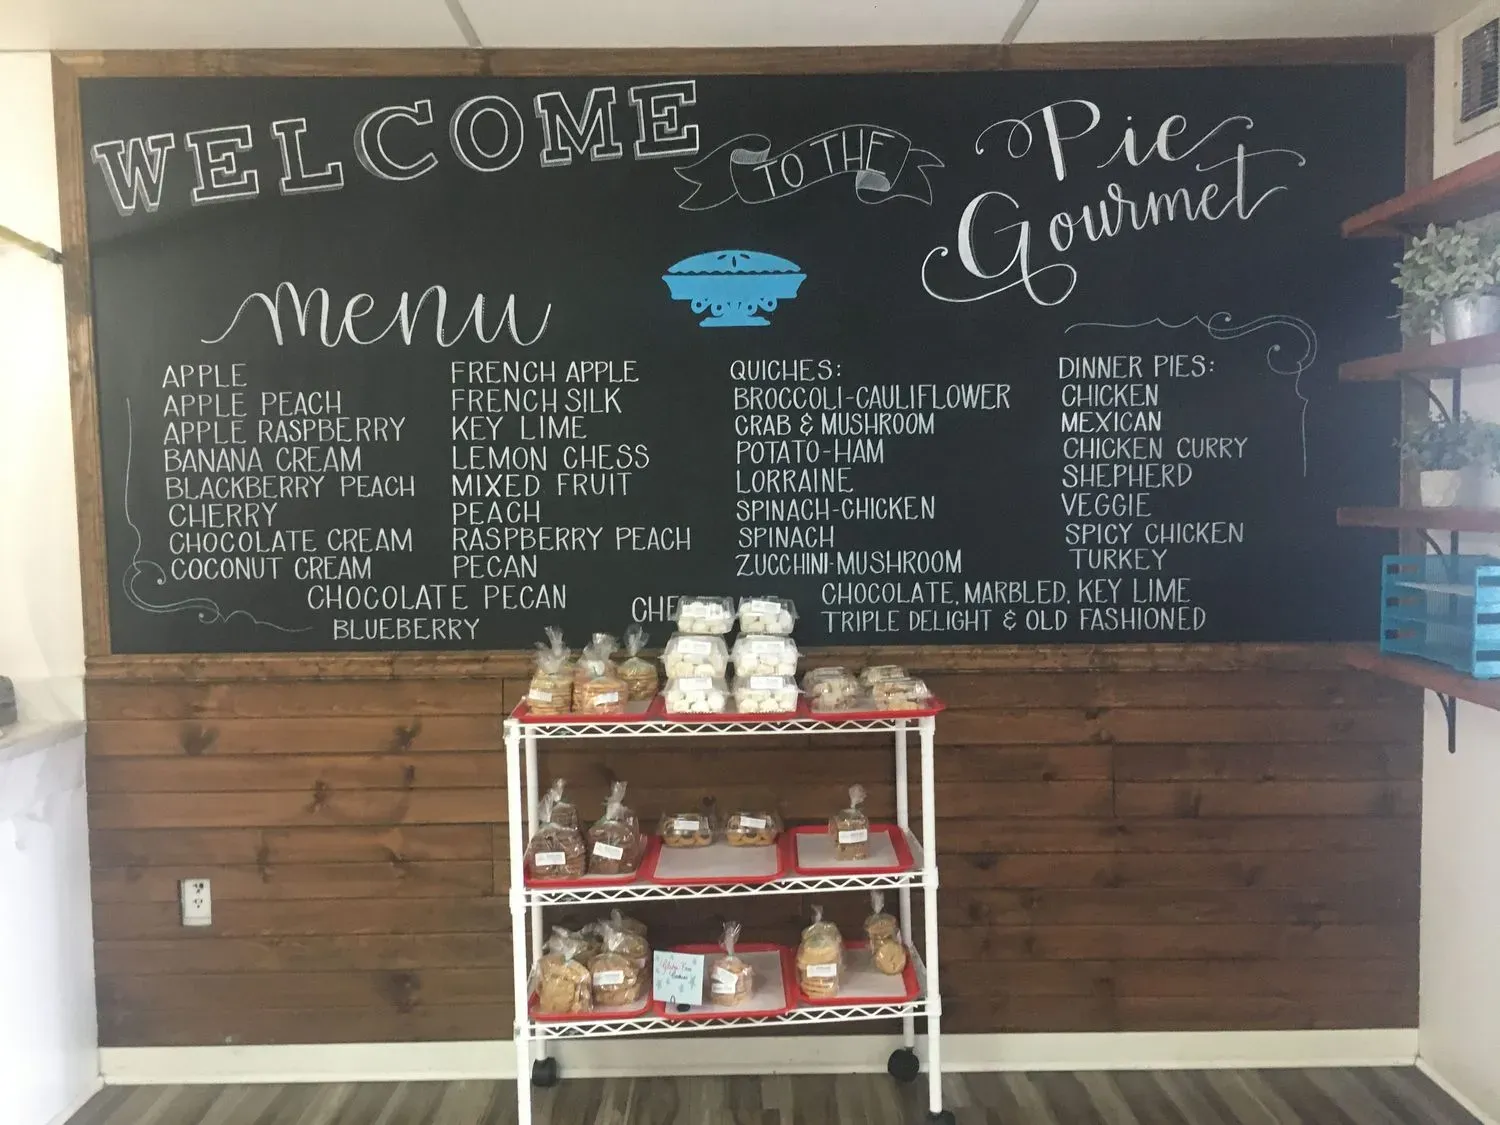 WELCOME TO THE Pie
Gourmet
menu
APPLE
APPLE PEACH
APPLE RASPBERRY
BANANA CREAM
BLACKBERRY PEACH
CHERRY
CHOCOLATE CREAM
COCONUT CREAM
CHOCOLATE PECAN
BLUEBERRY
FRENCH APPLE
FRENCH SILK
KEY LIME
LEMON CHESS
MIXED FRUIT
PEACH
RASPBERRY PEACH
PECAN
QUICHES:
BROCCOLI-CAULIFLOWER
CRAB & MUSHROOM
POTATO-HAM
LORRAINE
SPINACH-CHICKEN
SPINACH
ZUCCHINI-MUSHROOM
DINNER PIES:
CHICKEN
MEXICAN
CHICKEN CURRY
SHEPHERD
VEGGIE
SPICY CHICKEN
TURKEY
CHOCOLATE, MARBLED, KEY LIME
TRIPLE DELIGHT & OLD FASHIONED